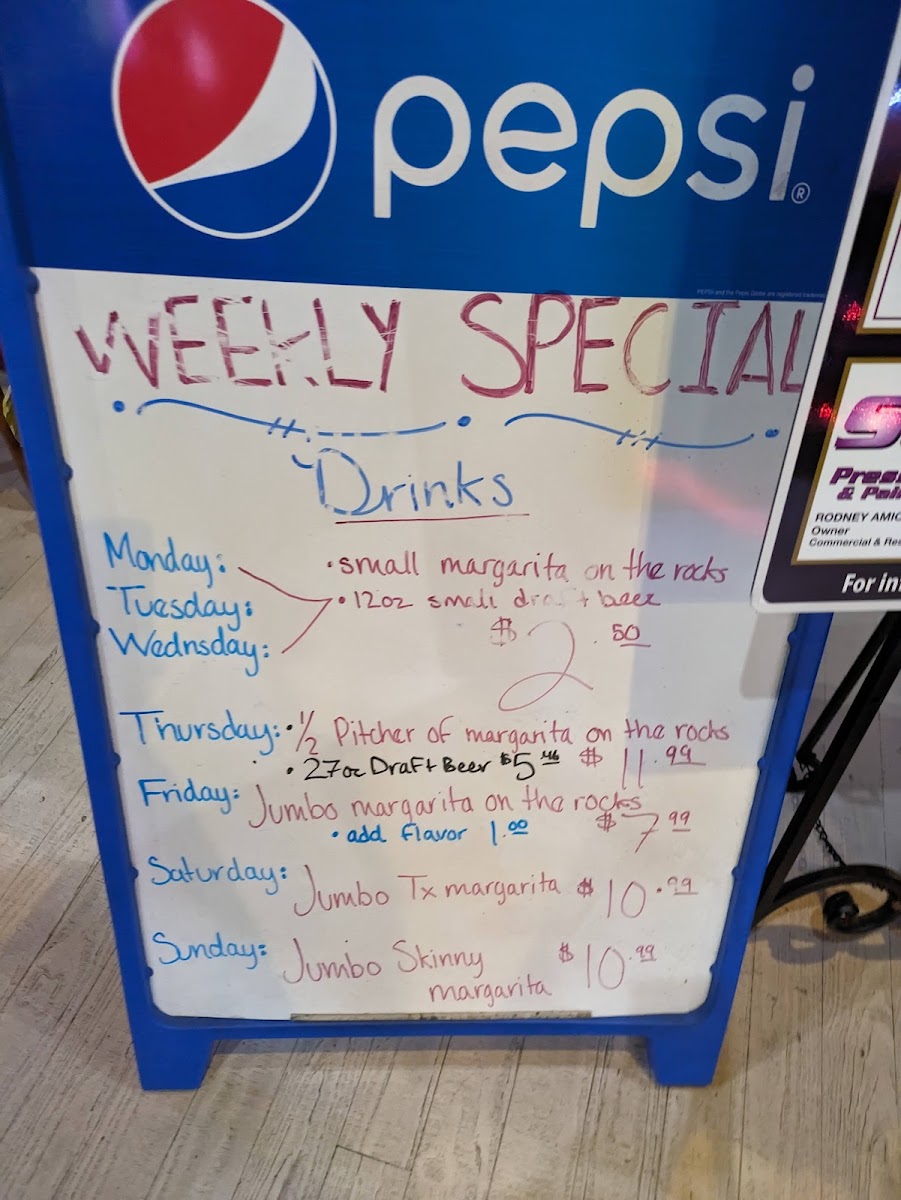 pepsi®
PEPSI and the Pepsi Globe are registered
WEEKLY SPECIAL
Drinks
Monday: • small margarita on the rocks
Tuesday: • 12oz small draft beer
Wednsday: $2.50
Thursday: • 1/2 Pitcher of margarita on the rocks
• 27oz Draft Beer $5.46 $11.99
Friday: Jumbo margarita on the rocks
• add flavor 1.00 $7.99
Saturday: Jumbo Tx margarita $10.99
Sunday: Jumbo Skinny $10.99
margarita
& Pai
RODNEY AMIC
Owner
Commercial & Res
For in